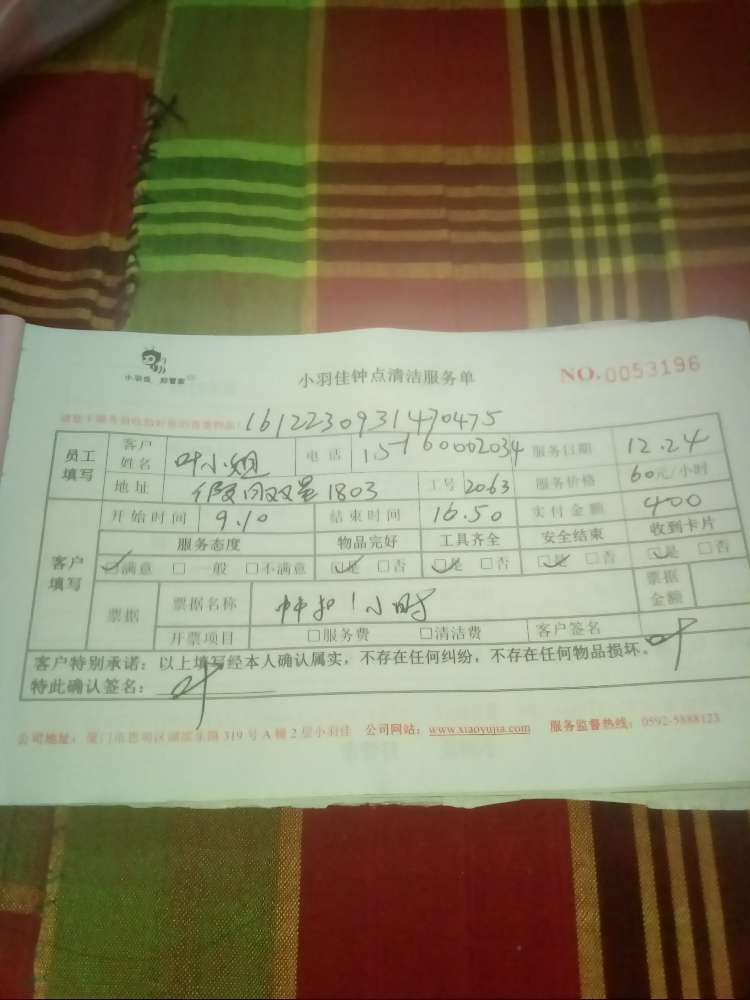 小羽佳 好管家
小羽佳钟点清洁服务单
NO.0053196
1612230931470475
员工填写 客户姓名 叶小姐 电话 15160002034 服务日期 12.24
地址 1803 工号 2063 服务价格 60元/小时
客户填写 开始时间 9.10 结束时间 16.50 实付金额 400
服务态度 物品完好 工具齐全 安全结束 收到卡片
☑满意 □一般 □不满意 ☑是 □否 ☑是 □否 ☑是 □否 ☑是 □否
票据 票据名称 1小时 票据金额
开票项目 □服务费 □清洁费 客户签名 叶
客户特别承诺：以上填写经本人确认属实，不存在任何纠纷，不存在任何物品损坏。
特此确认签名： 叶
公司地址：厦门市思明区湖滨东路 319 号 A 幢 2 层小羽佳 公司网站：www.xiaoyujia.com 服务监督热线：0592-5888123